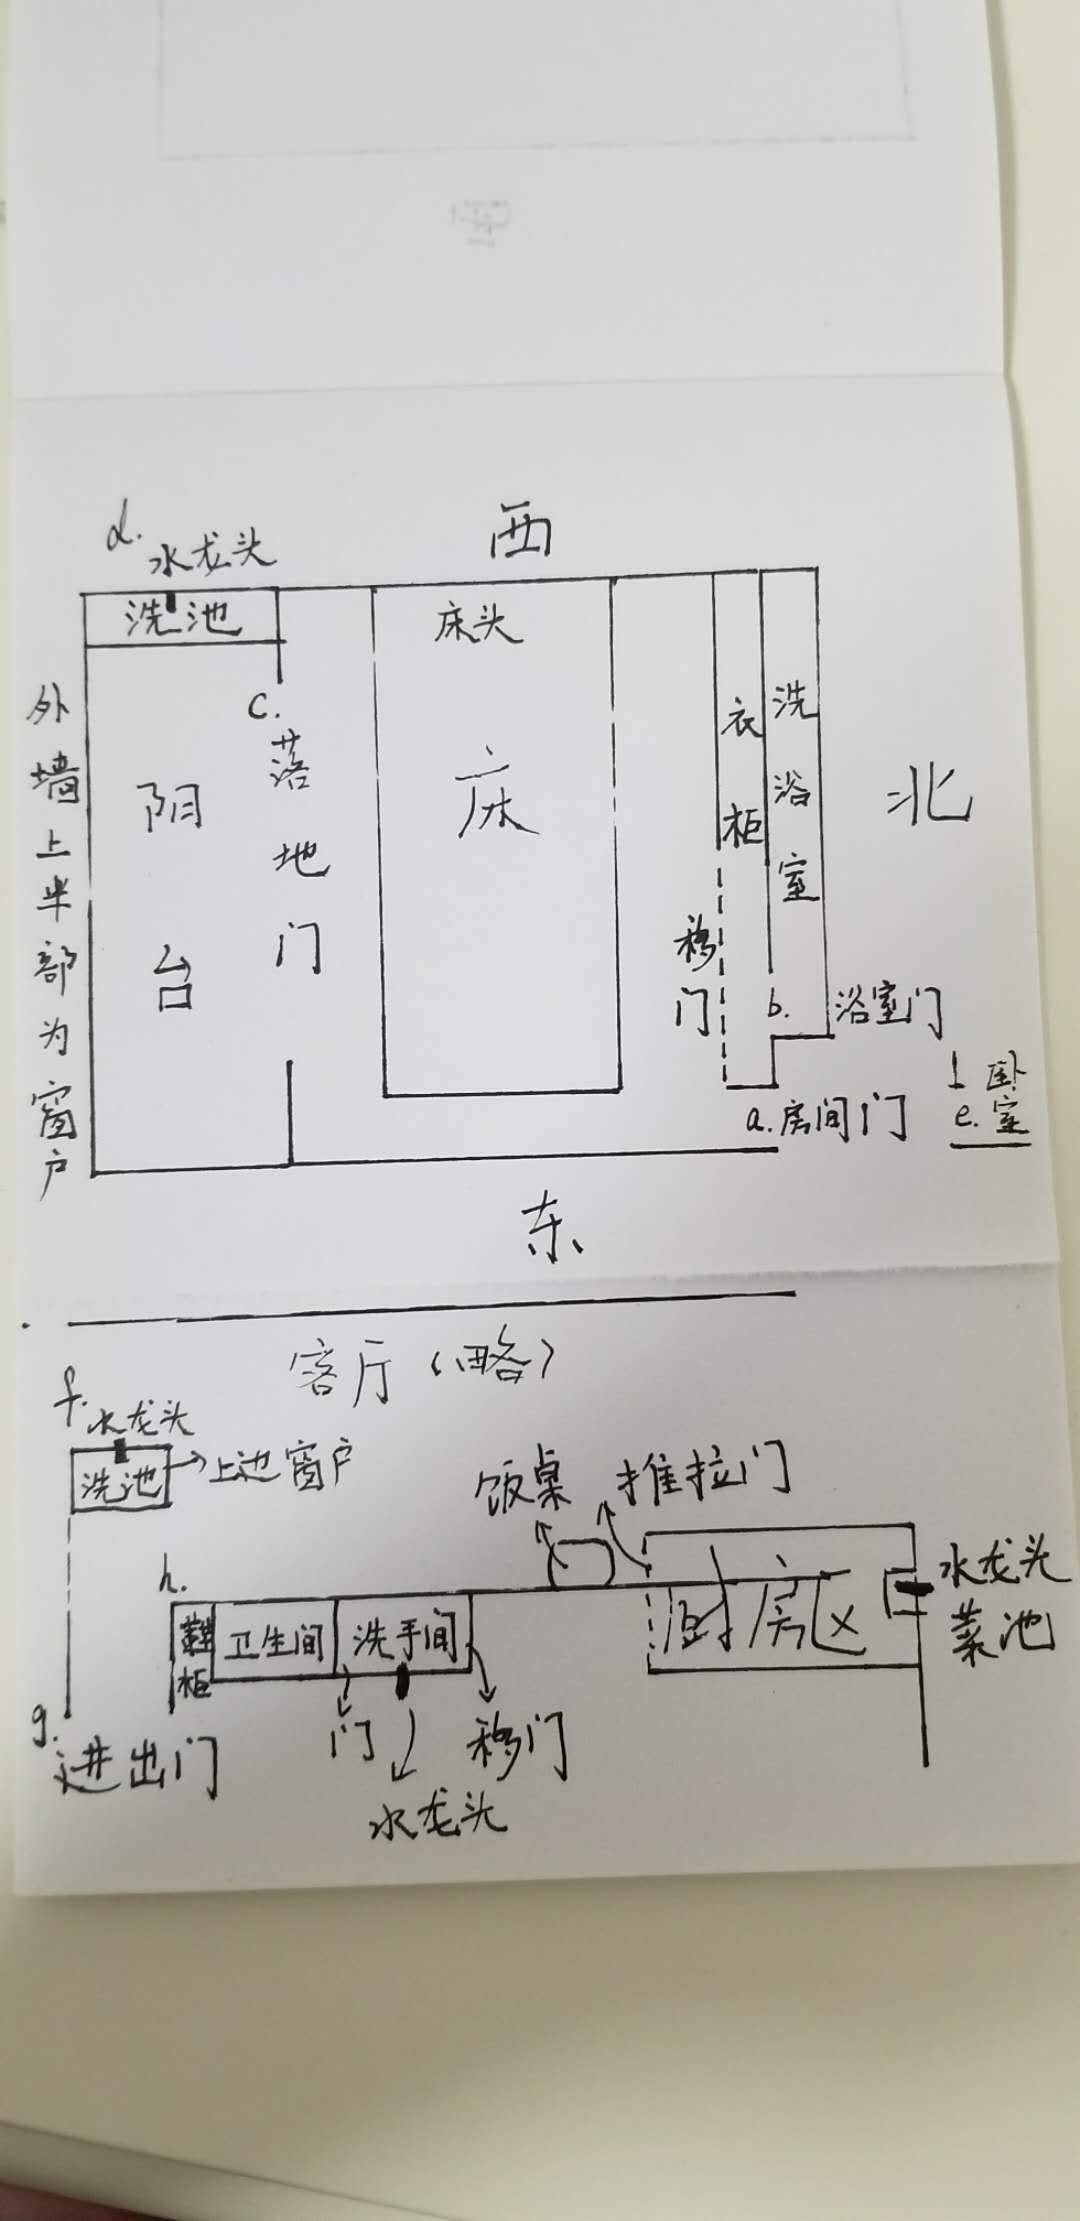 d.
水龙头
西
洗池
床头
外墙上半部为窗户
c.
落地门
阳台
床
衣柜
洗浴室
北
移门
b.
浴室门
a.房间门
卧室
e.
东
客厅(略)
f.
水龙头
洗池
上边窗户
饭桌
推拉门
h.
鞋柜
卫生间
洗手间
厨房区
水龙头
菜池
g.
进出门
门
移门
水龙头